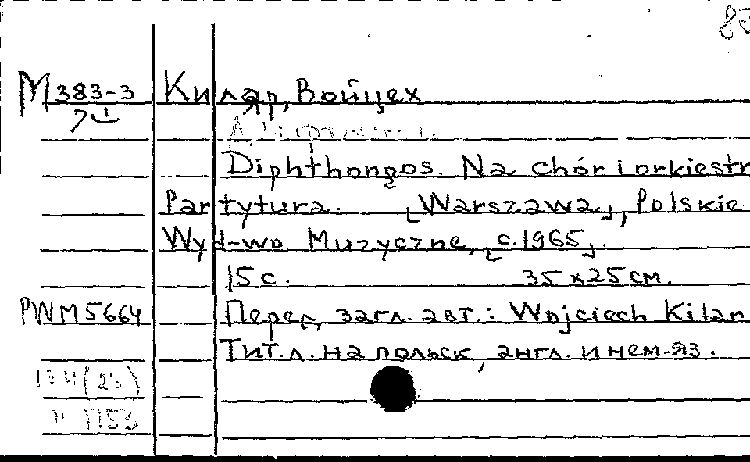 М383-3 Килар, Войцех
Diphthongos. Na chór i orkiestr
Partytura. [Warszawa], Polskie
Wyd-wo Muzyczne, [c.1965].
15 с. 35 x 25 см.
PWM 5664 Перед загл. авт.: Wojciech Kilar
Тит.л. на польск, англ. и нем-яз.